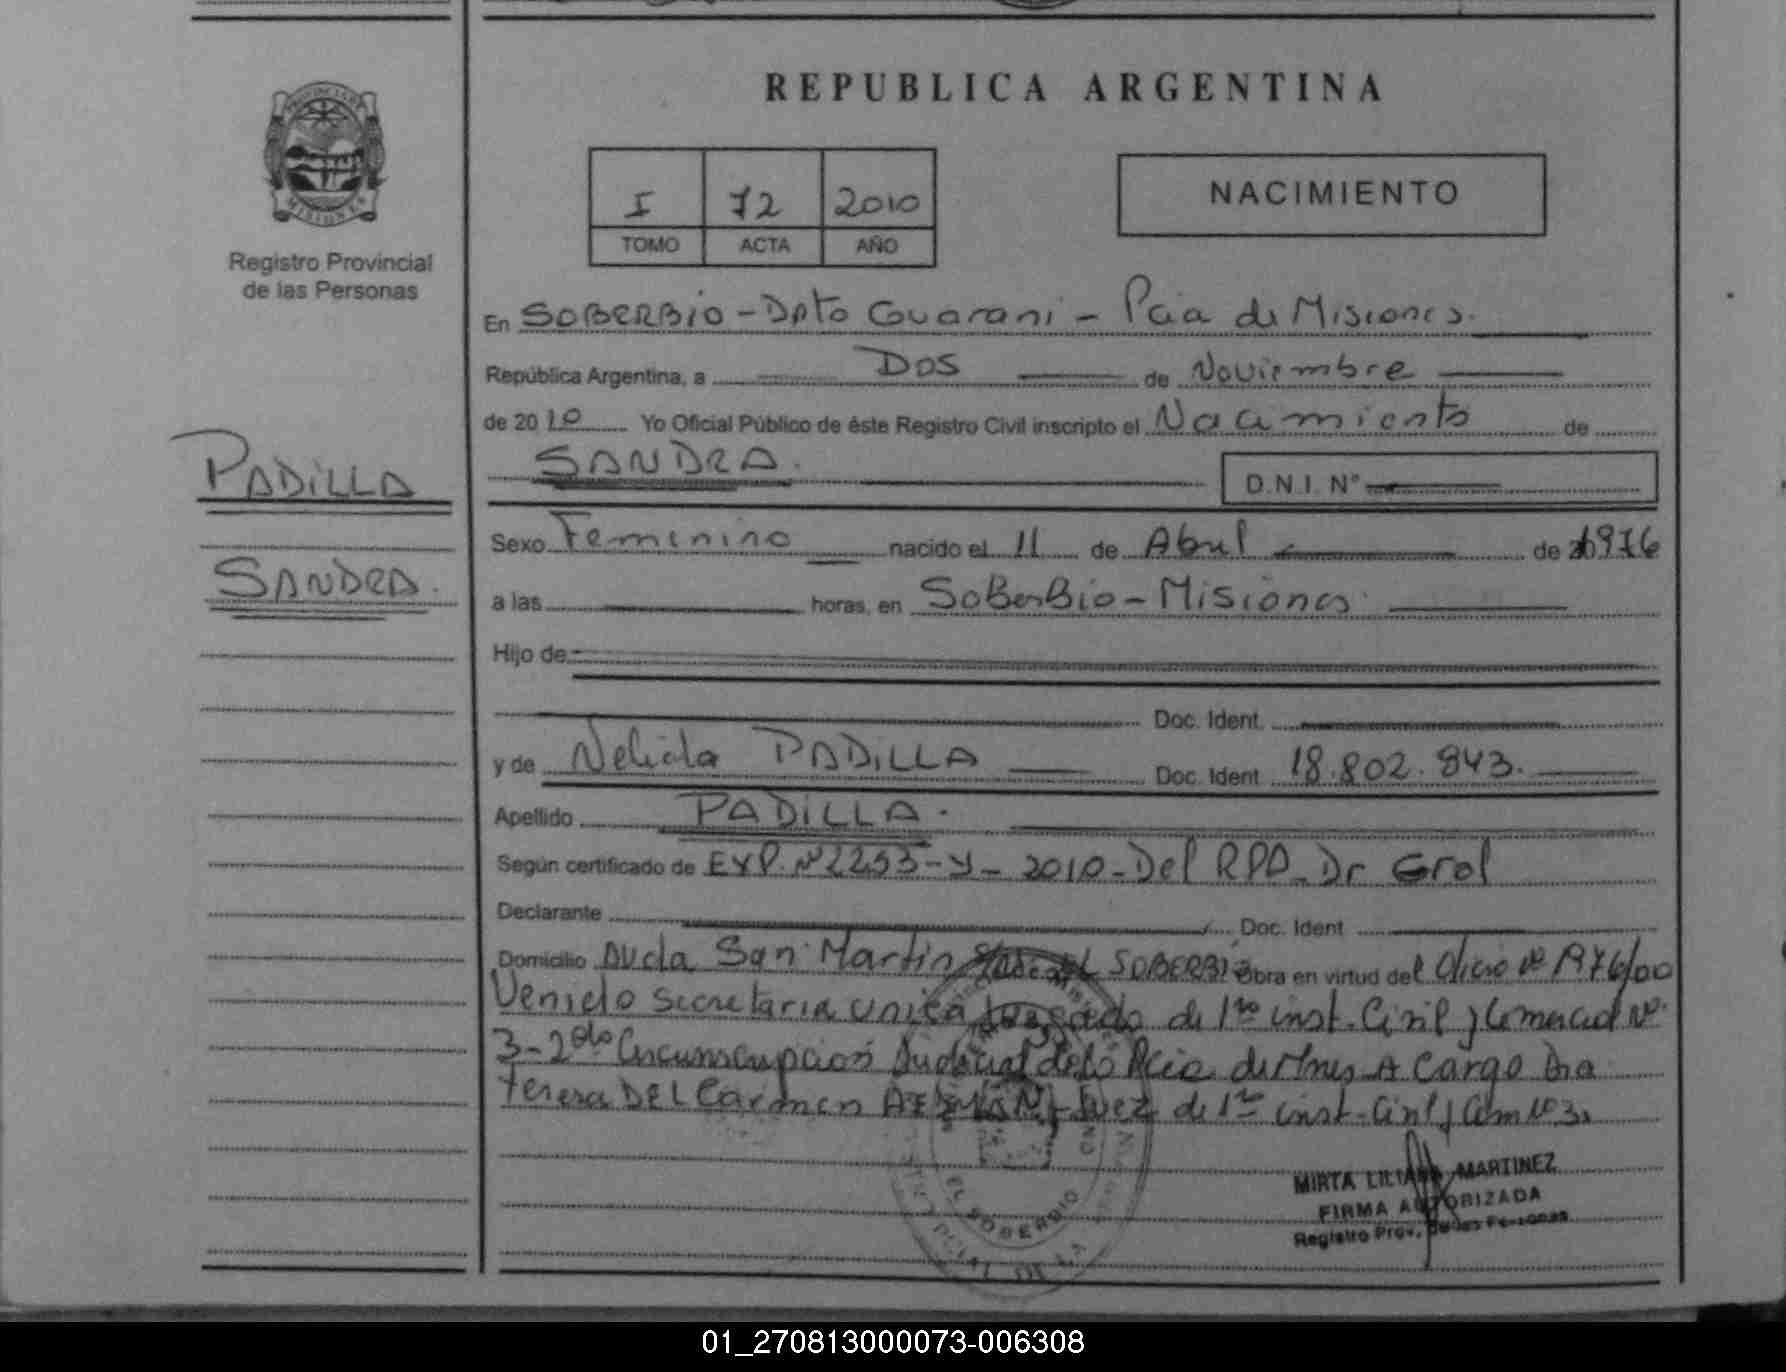 REPUBLICA ARGENTINA
PROVINCIA DE
MISIONES
Registro Provincial
de las Personas
I 72 2010
TOMO ACTA AÑO
NACIMIENTO
En SOBERBIO - Dpto Guarani - Pcia de Misiones.
República Argentina, a DOS de Noviembre
de 2010 Yo Oficial Público de éste Registro Civil inscripto el Nacimiento de
SANDRA.
D.N.I. N°
PADILLA
SANDRA.
Sexo Femenino nacido el 11 de Abril de 1976
a las horas, en SoBerBio - Misiones.
Hijo de
Doc. Ident.
y de Nelida PADILLA Doc. Ident 18.802.843.
Apellido PADILLA.
Según certificado de EXP. N° 2253-Y-2010-Del RPD-Dr Grol
Declarante Doc. Ident
Domicilio Avda San Martin SOBERBIO Obra en virtud del Oficio N° 1976/00
Venido Secretaria Unica Juzgado de 1ra inst. Civil y Comercial N°
3-2da Circunscripcion Judicial de la Pcia de Mnes A Cargo Dra
Teresa DEL Carmen Juez de 1ra inst. Civil y Com N° 3.
EL SOBERBIO
MIRTA LILIANA MARTINEZ
FIRMA AUTORIZADA
Registro Prov. de las Personas
01_270813000073-006308